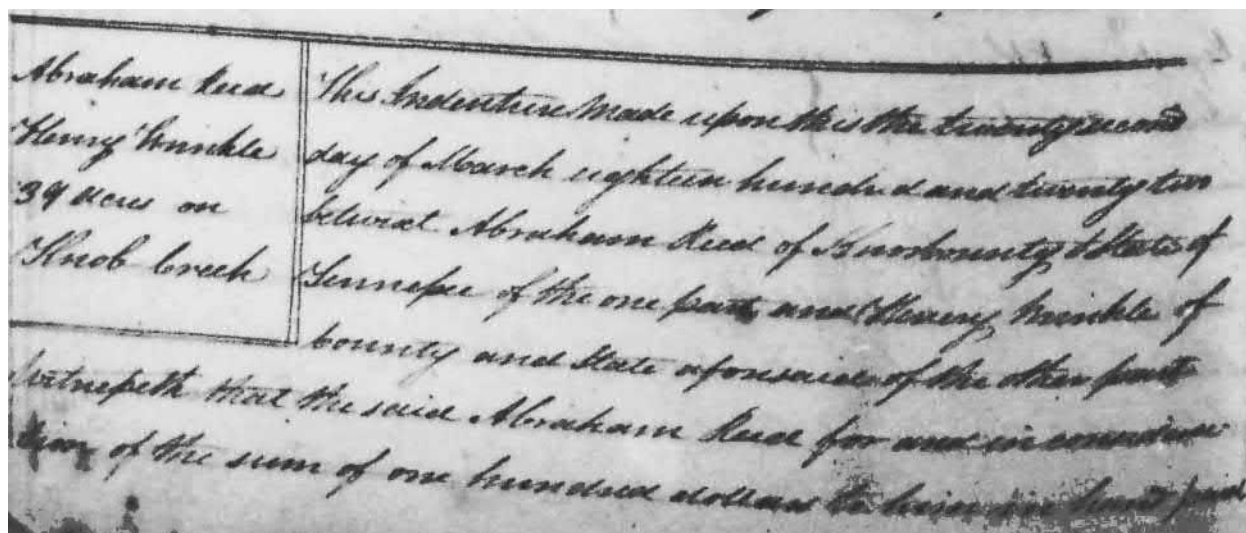 Abraham Reed
Henry Hunkle
39 acres on
Knob Creek
This Indenture Made upon this the twenty second
day of March eighteen hundred and twenty two
betwixt Abraham Reed of Knox County & State of
Tennessee of the one part and Henry Hunkle of
County and State aforesaid of the other part
Witnesseth that the said Abraham Reed for and in considera
tion of the sum of one hundred dollars to him in hand paid